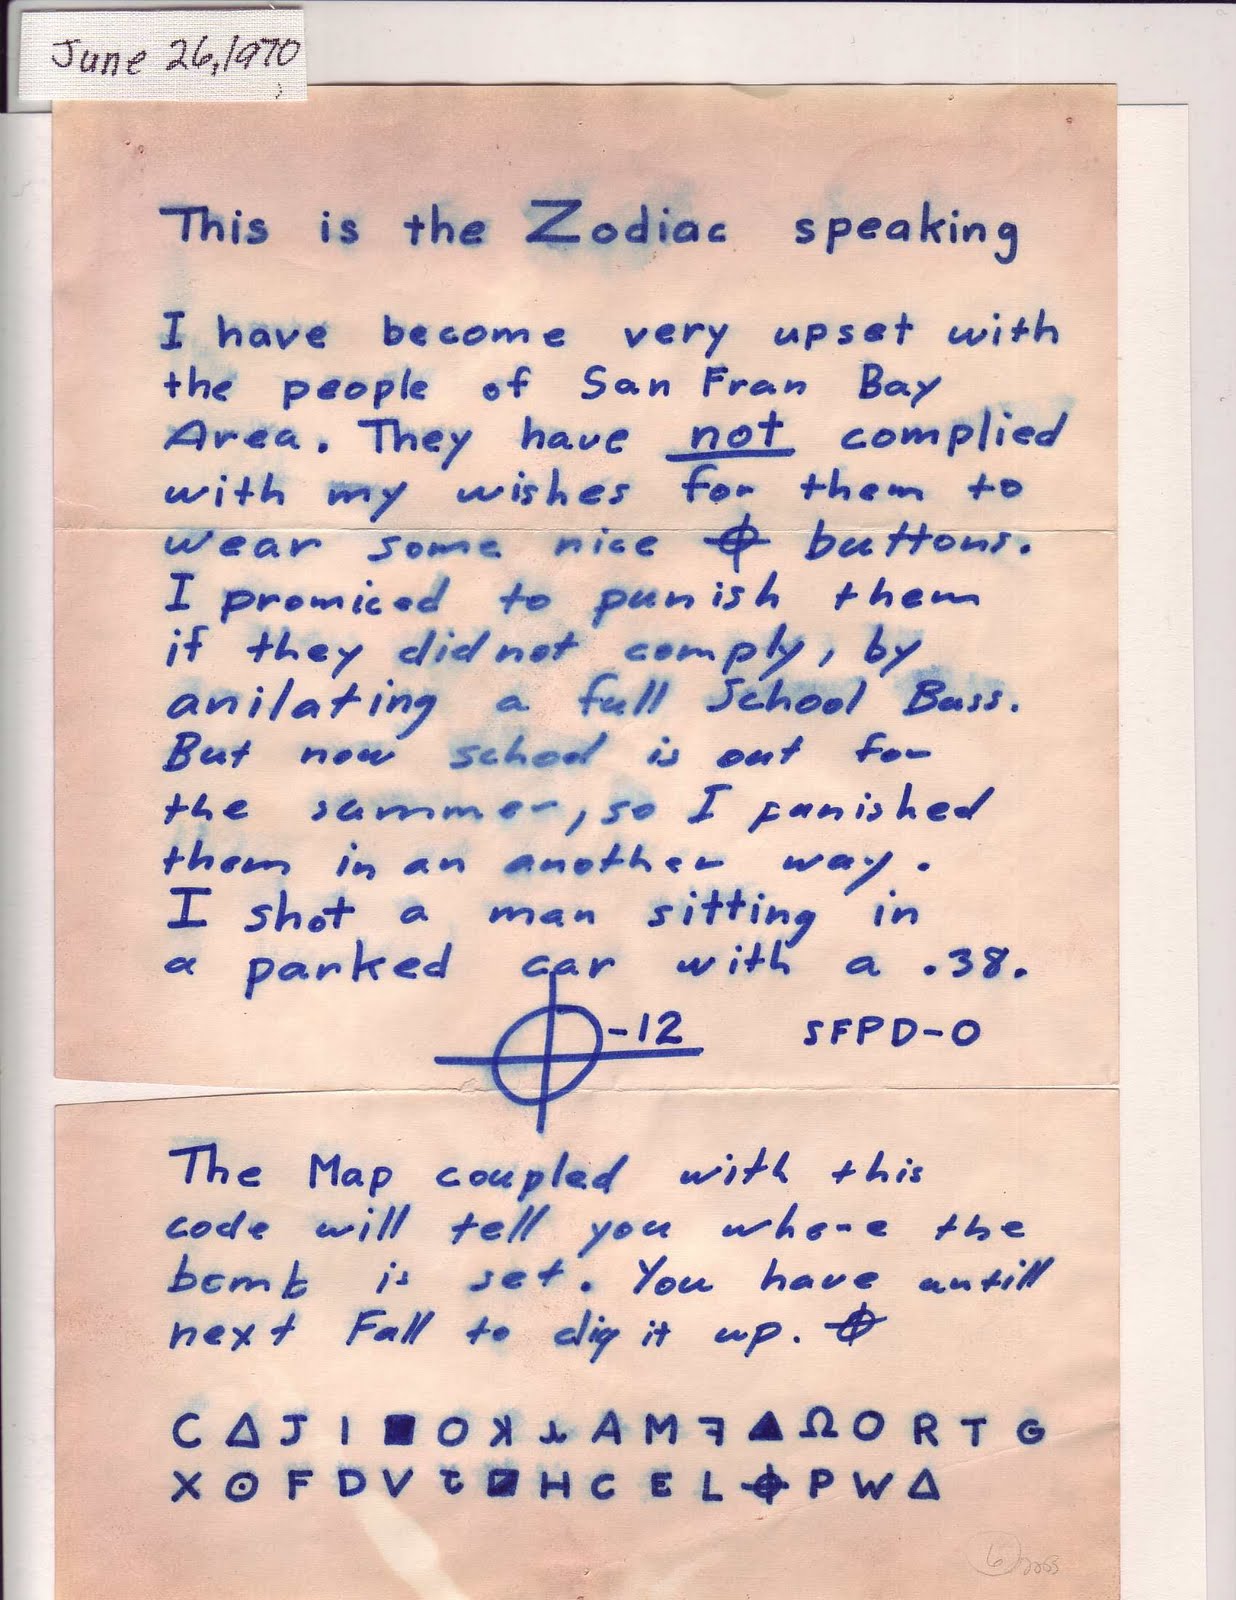 June 26, 1970
This is the Zodiac speaking
I have become very upset with
the people of San Fran Bay
Area. They have not complied
with my wishes for them to
wear some nice ⌖ buttons.
I promiced to punish them
if they did not comply, by
anilating a full School Buss.
But now school is out for
the summer, so I punished
them in an another way.
I shot a man sitting in
a parked car with a .38.
⌖-12 SFPD-0
The Map coupled with this
code will tell you where the
bomb is set. You have untill
next Fall to dig it up. ⌖
C Δ J I ■ O ꓘ ⅄ A M ꟻ ▲ Ω O R T G
X ⊙ F D V ⴠ ◪ H C E L ⌖ P W Δ